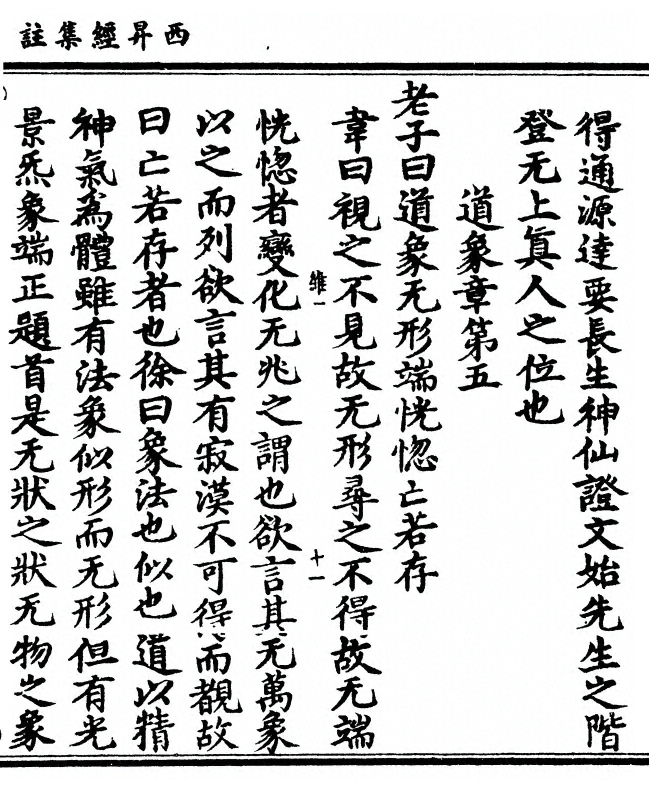 西昇經集註
得通源達要長生神仙證文始先生之階
登无上眞人之位也
道象章第五
老子曰道象无形端恍惚亡若存
韋曰視之不見故无形尋之不得故无端
維一
十一
恍惚者變化无兆之謂也欲言其无萬象
以之而列欲言其有寂漠不可得而覩故
曰亡若存者也徐曰象法也似也道以精
神氣爲體雖有法象似形而无形但有光
景炁象端正題首是无狀之狀无物之象